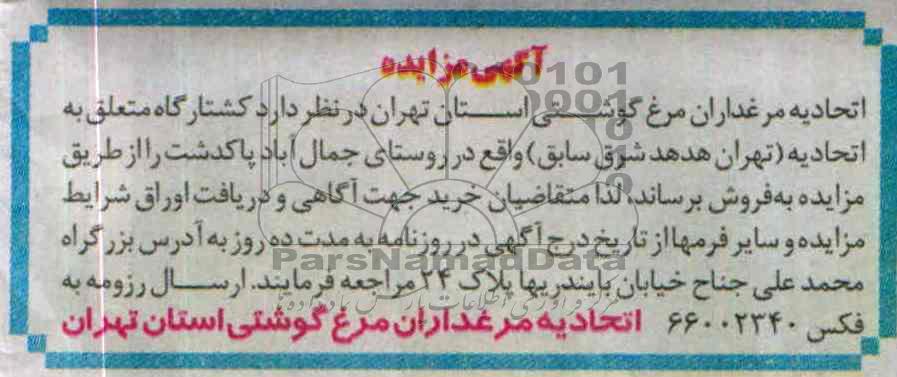 آگهی مزایده
اتحادیه مرغداران مرغ گوشتی استان تهران در نظر دارد کشتارگاه متعلق به
اتحادیه (تهران هدهد شرق سابق) واقع در روستای جمال آباد پاکدشت را از طریق
مزایده به فروش برساند، لذا متقاضیان خرید جهت آگاهی و دریافت اوراق شرایط
مزایده و سایر فرمها از تاریخ درج آگهی در روزنامه به مدت ده روز به آدرس بزرگراه
محمد علی جناح خیابان بایندریها پلاک ۲۴ مراجعه فرمایند. ارسال رزومه به
فکس ۶۶۰۰۲۳۴۰ اتحادیه مرغداران مرغ گوشتی استان تهران
ParsNamadData